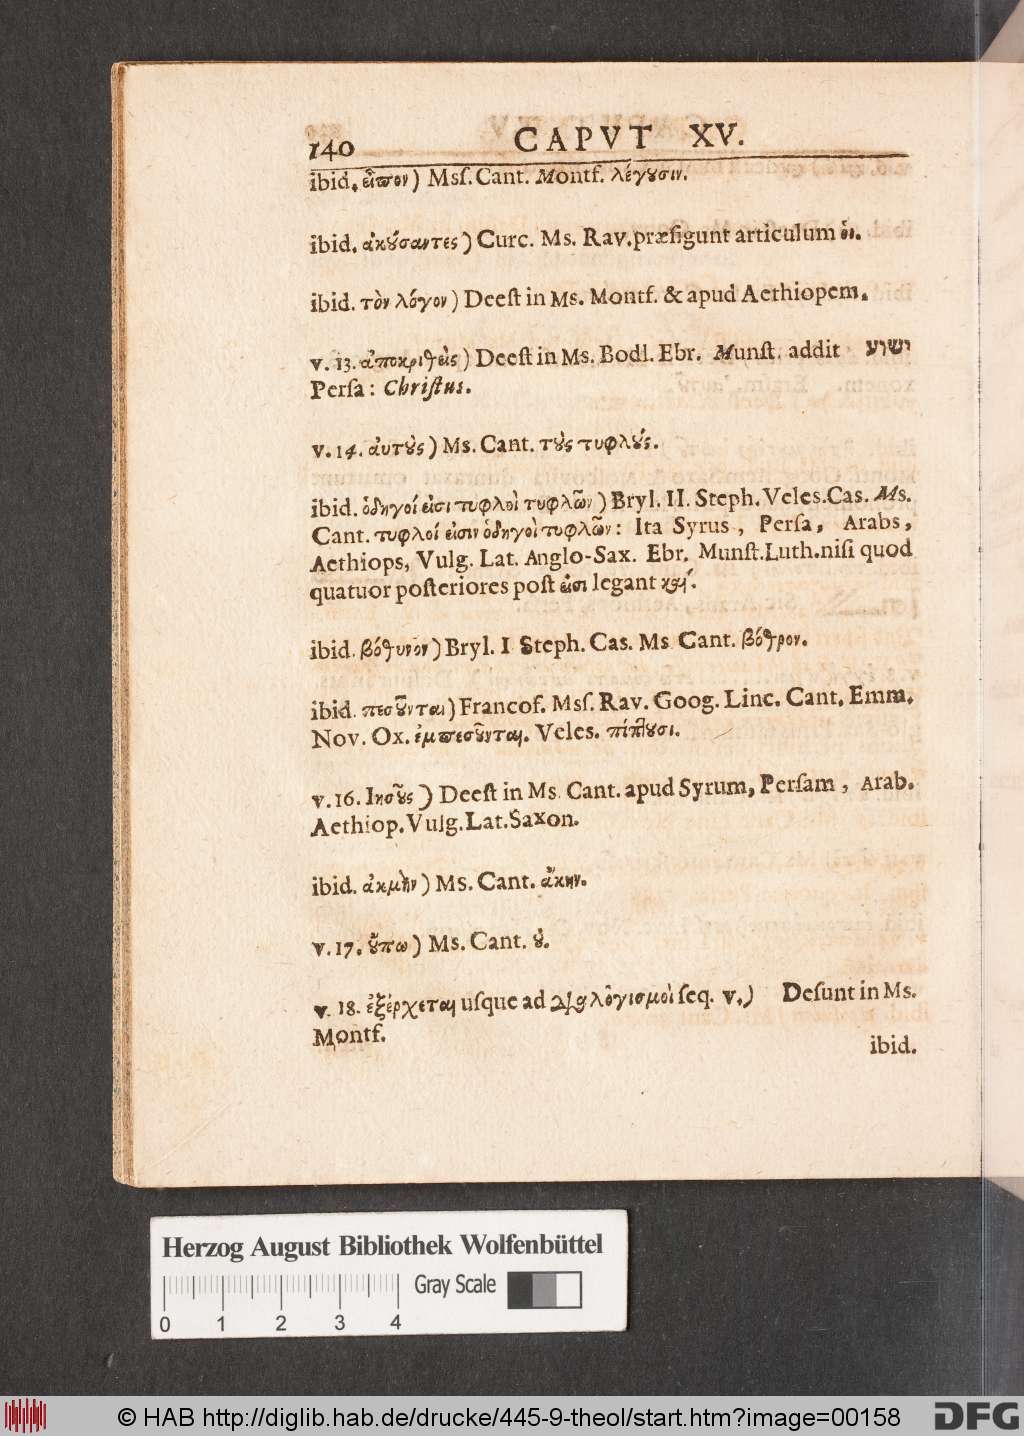 140 CAPVT XV.
ibid. εἶπον) Mſſ. Cant. Montf. λέγουσιν.
ibid. ἀκούσαντες) Curc. Ms. Rav. præfigunt articulum οἱ.
ibid. τὸν λόγον) Deeſt in Ms. Montf. & apud Aethiopem.
v. 13. ἀποκριθεὶς) Deeſt in Ms. Bodl. Ebr. Munſt. addit ישוע
Perſa: Chriſtus.
v. 14. ἀυτοὺς) Ms. Cant. τοὺς τυφλούς.
ibid. ὁδηγοί εἰσι τυφλοὶ τυφλῶν) Bryl. II. Steph. Veles. Cas. Ms.
Cant. τυφλοί εἰσιν ὁδηγοὶ τυφλῶν: Ita Syrus, Perſa, Arabs,
Aethiops, Vulg. Lat. Anglo-Sax. Ebr. Munſt. Luth. niſi quod
quatuor poſteriores poſt εἰσι legant καί.
ibid. βόθυνον) Bryl. I Steph. Cas. Ms Cant. βόθρον.
ibid. πεσοῦνται) Francof. Mſſ. Rav. Goog. Linc. Cant, Emm.
Nov. Ox. ἐμπεσοῦνται. Veles. πίπτουσι.
v. 16. Ιησοῦς) Deeſt in Ms. Cant. apud Syrum, Perſam, Arab.
Aethiop. Vulg. Lat. Saxon.
ibid. ἀκμὴν) Ms. Cant. ἄκην.
v. 17. οὔπω) Ms. Cant. οὐ.
v. 18. ἐξέρχεται uſque ad διαλογισμοὶ ſeq. v.) Deſunt in Ms.
Montf.
ibid.
Herzog August Bibliothek Wolfenbüttel
Gray Scale
0 1 2 3 4
© HAB http://diglib.hab.de/drucke/445-9-theol/start.htm?image=00158
DFG